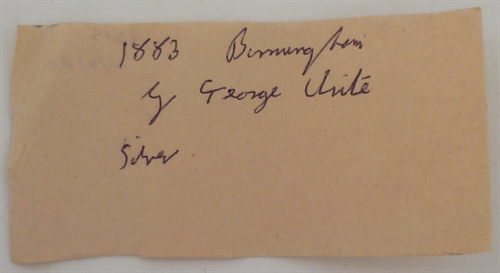 1883 Birmingham
by George Unite
Silver